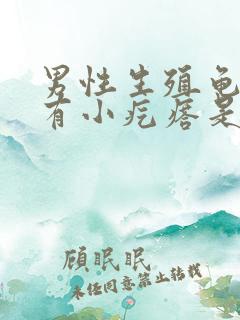 男性生殖龟
有小疙瘩是
顾眠眠
未经同意禁止转载